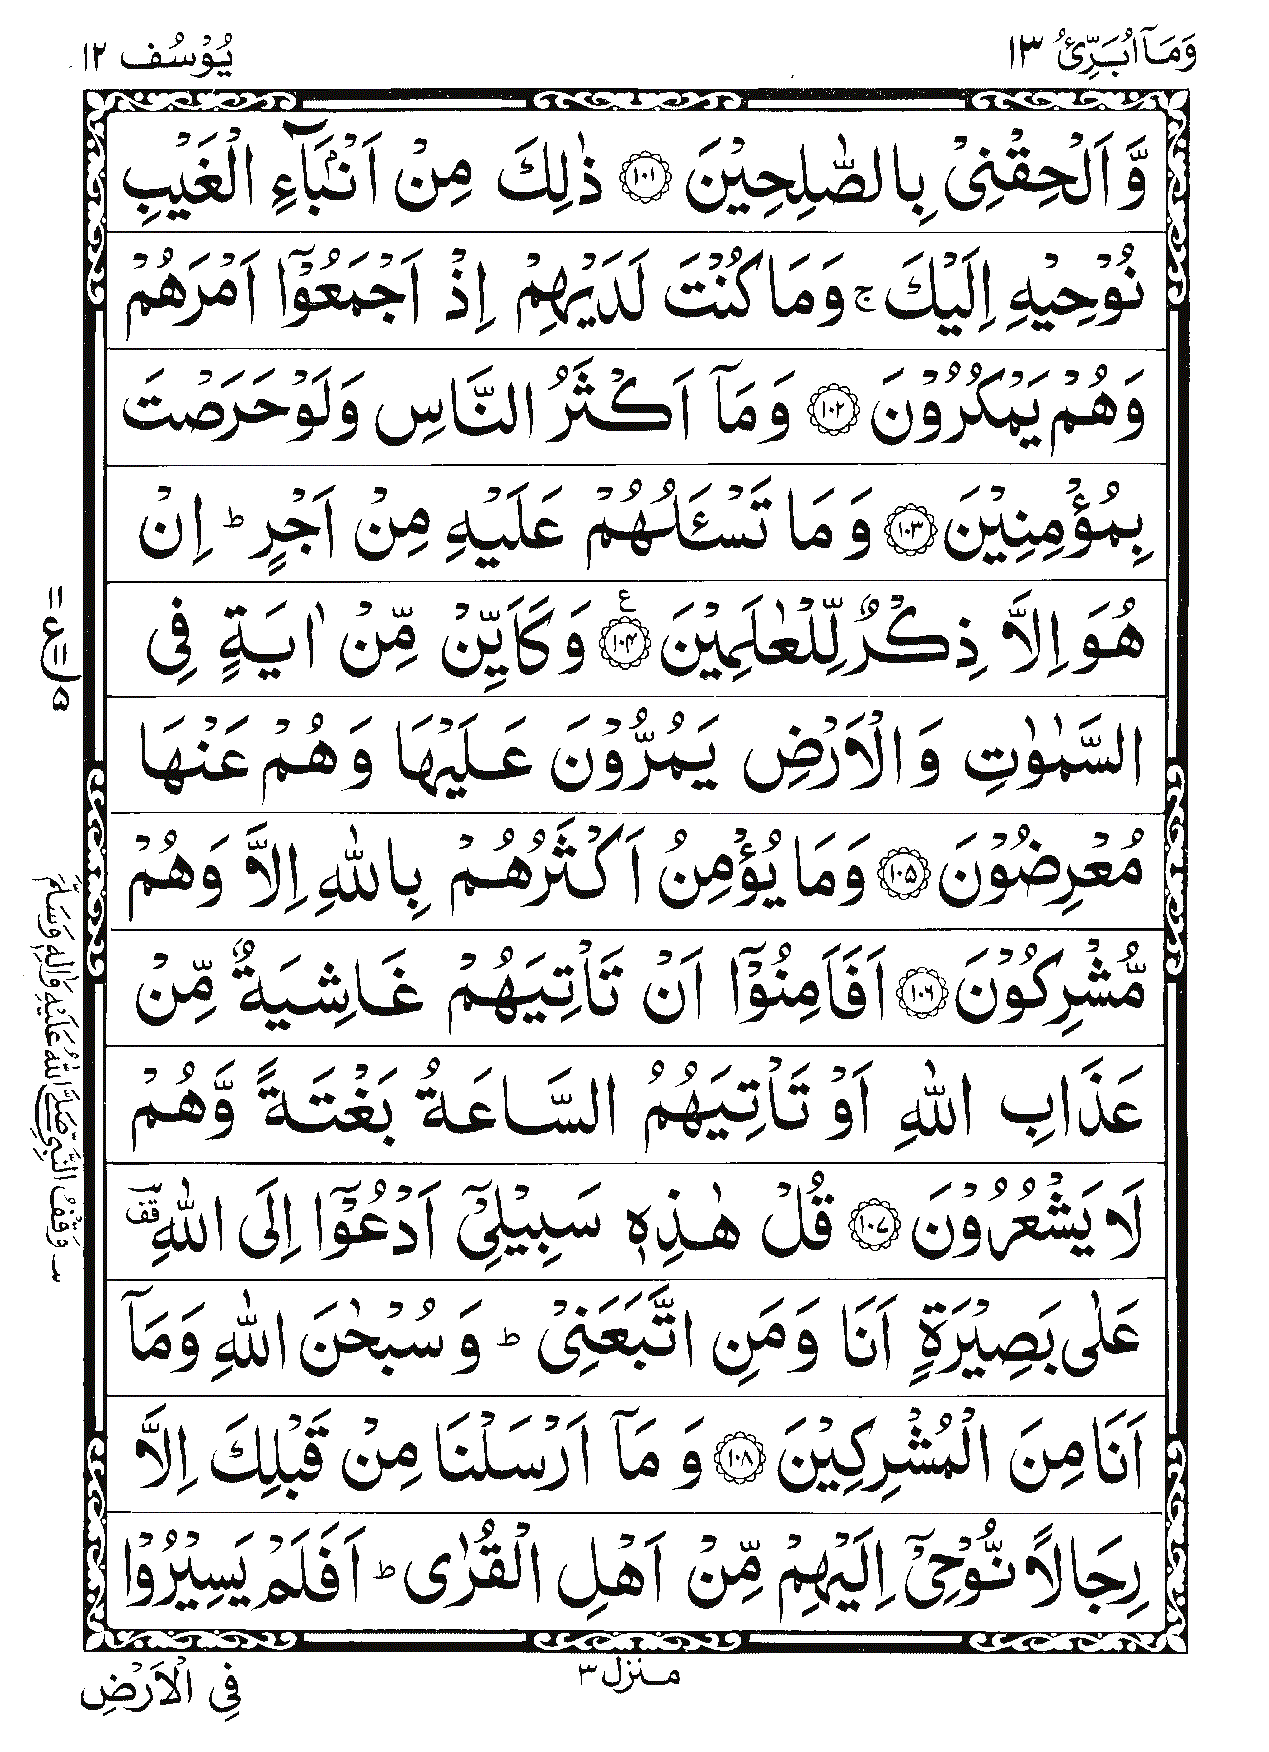 وَمَاۤ اُبَرِّئُ ١٣
يُوْسُف ١٢
وَّ اَلْحِقْنِیْ بِالصّٰلِحِیْنَ ۝۱۰۱ ذٰلِكَ مِنْ اَنْۢبَآءِ الْغَیْبِ
نُوْحِیْهِ اِلَیْكَ ۚ وَمَا كُنْتَ لَدَیْهِمْ اِذْ اَجْمَعُوْۤا اَمْرَهُمْ
وَهُمْ یَمْكُرُوْنَ ۝۱۰۲ وَمَاۤ اَكْثَرُ النَّاسِ وَلَوْ حَرَصْتَ
بِمُؤْمِنِیْنَ ۝۱۰۳ وَ مَا تَسْـَٔلُهُمْ عَلَیْهِ مِنْ اَجْرٍ ؕ اِنْ
هُوَ اِلَّا ذِكْرٌ لِّلْعٰلَمِیْنَ ۝۱۰۴ ع وَكَاَیِّنْ مِّنْ اٰیَةٍ فِی
السَّمٰوٰتِ وَ الْاَرْضِ یَمُرُّوْنَ عَلَیْهَا وَ هُمْ عَنْهَا
مُعْرِضُوْنَ ۝۱۰۵ وَمَا یُؤْمِنُ اَكْثَرُهُمْ بِاللّٰهِ اِلَّا وَهُمْ
مُّشْرِكُوْنَ ۝۱۰۶ اَفَاَمِنُوْۤا اَنْ تَاْتِیَهُمْ غَاشِیَةٌ مِّنْ
عَذَابِ اللّٰهِ اَوْ تَاْتِیَهُمُ السَّاعَةُ بَغْتَةً وَّهُمْ
لَا یَشْعُرُوْنَ ۝۱۰۷ قُلْ هٰذِهٖ سَبِیْلِیْۤ اَدْعُوْۤا اِلَى اللّٰهِ ؔقف
عَلٰى بَصِیْرَةٍ اَنَا وَمَنِ اتَّبَعَنِیْ ؕ وَ سُبْحٰنَ اللّٰهِ وَمَاۤ
اَنَا مِنَ الْمُشْرِكِیْنَ ۝۱۰۸ وَ مَاۤ اَرْسَلْنَا مِنْ قَبْلِكَ اِلَّا
رِجَالًا نُّوْحِیْۤ اِلَیْهِمْ مِّنْ اَهْلِ الْقُرٰى ؕ اَفَلَمْ یَسِیْرُوْا
ع
۵
وَقْفُ النَّبِيِّ صَلَّى اللّٰهُ عَلَيْهِ وَاٰلِهٖ وَسَلَّمَ
منزل ۳
فِي الْاَرْضِ